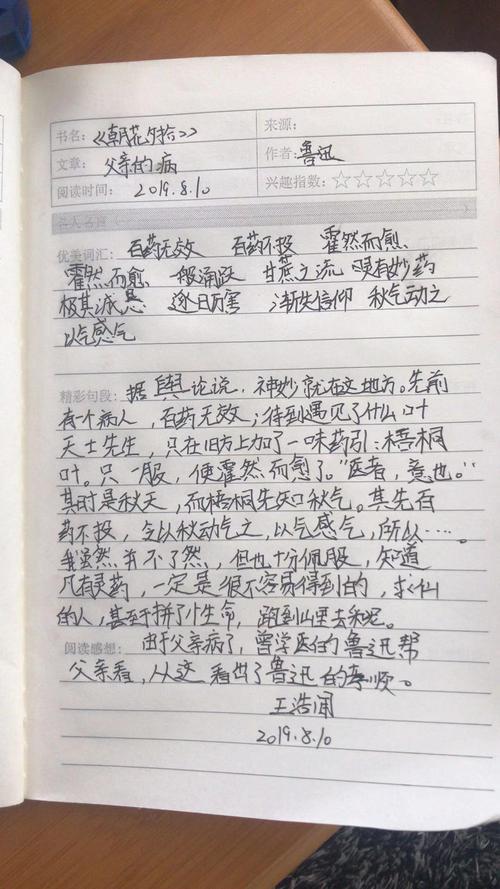 书名：《朝花夕拾》 来源：
文章：父亲的病 作者：鲁迅
阅读时间：2019.8.10 兴趣指数：☆☆☆☆☆
名人名言
优美词汇：百药无效 百药不投 霍然而愈
霍然而愈 一般涌跃 甘蔗之流 眼有妙药
极其减 逐日厉害 渐失信仰 秋气动之
以气感气
精彩句段：据舆论说，神妙就在这地方。先前
有一个病人，百药无效；待到遇见了什么叶
天士先生，只在旧方上加了一味药引：梧桐
叶。只一服，便霍然而愈了。"医者，意也。"
其时是秋天，而梧桐先知秋气。其先百
药不投，今以秋动气之，以气感气，所以……
我虽然并不了然，但也十分佩服，知道
凡有灵药，一定是很不容易得到的，求仙
的人，甚至于拼了性命，跑到山里去和呢。
阅读感想：由于父亲病了，曾学医的鲁迅帮
父亲看，从这看出了鲁迅的孝顺。
王浩闻
2019.8.10